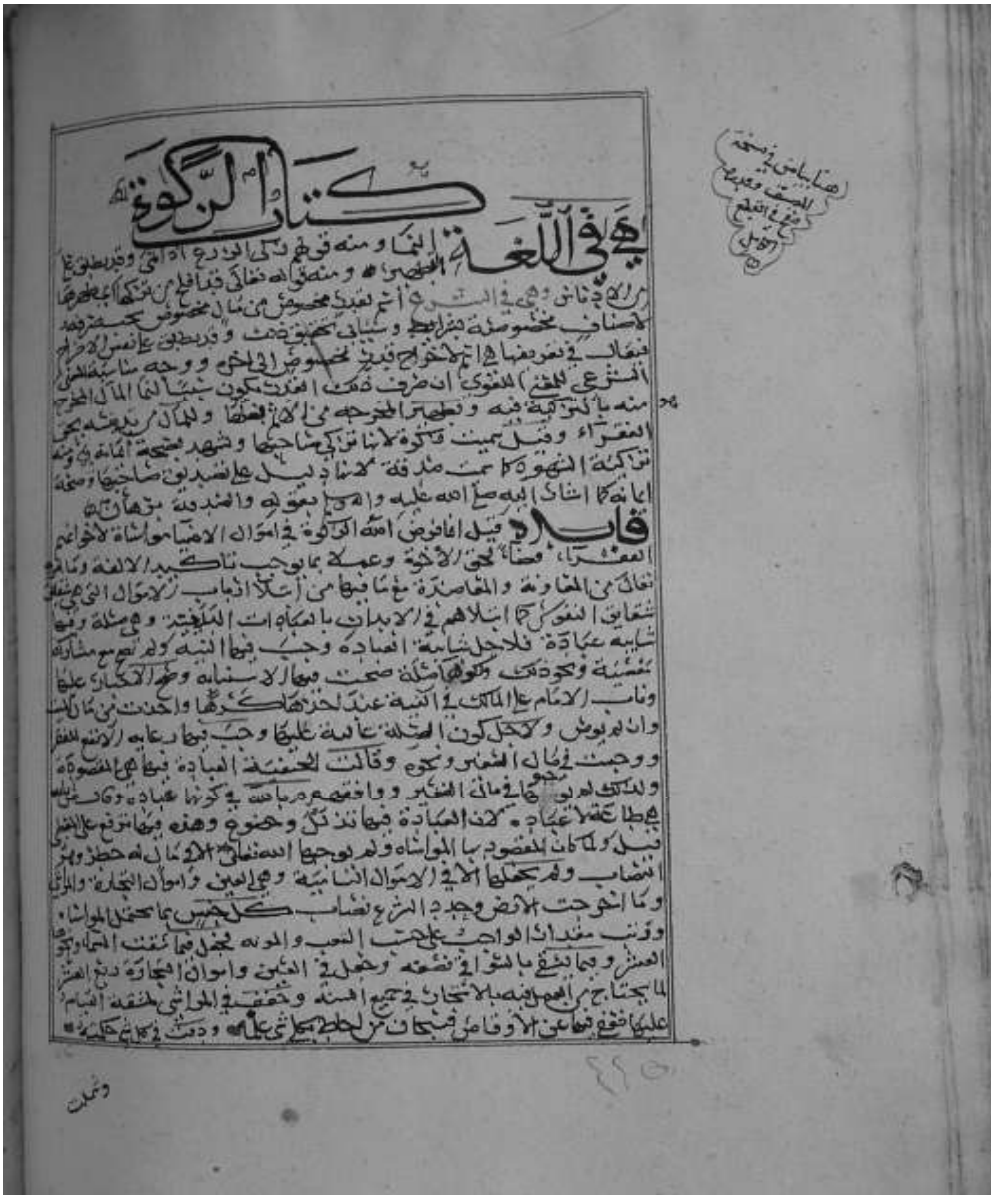 كتاب الزكوة
هي في اللغة النما ومنه قولهم زكى الزرع اذا نمى وقد يطلق على
التطهير ومنه قوله تعالى قد افلح من تزكى اي تطهر
من الادناس وهي في الشرع اسم لقدر مخصوص من مال مخصوص
لاصناف مخصوصة بشرايط وسياتي تحقيق ذلك وقد يطلق على نفس الاخراج
فيقال في تعريفها هي اسم لاخراج قدر مخصوص الى اخره ووجه مناسبة المعنى
الشرعي للمعنى اللغوي ان صرف ذلك القدر يكون سببا لنما المال المخرج
منه بالتزكية فيه وتطهير المخرجه من الاثم وللمال بحق
الفقراء وقيل سميت زكوة لانها تزكي صاحبها وتشهد بصحة ايمانه
تزكية الشهود كما سمت صدقة لانها دليل على تصديق صاحبها وصحة
ايمانه كما اشار اليه صلى الله عليه واله وسلم بقوله والصدقة برهان
فايدة قيل انما فرض الله الزكوة في اموال الاغنيا مواساة لاخوانهم
الفقراء وقضاء لحق الاخوة وعملا بما يوجب تاكيد الالفة
تعالى من المعاونة والمعاضدة مع ما فيها من ابتلا ارباب الاموال التي هي
شقايق النفوس كما ابتلاهم في الابدان بالعبادات البدنية وهي صلة وفيها
شايبه عبادة فلاجل شايبة العبادة وجب فيها النيه ولم تصح مع مشاركة
معصية ونحو ذلك ولكونها صلة صحت فيها الاستنابه وصح الاكراه عليها
وناب الامام على المالك في النية عند اخذها كرها واخذت من مال الميت
وان لم يوص ولاجل كون الصلة غالبة عليها وجب فيها رعاية الانفع للفقراء
ووجبت في مال الصغير ونحوه وقالت الحنفية العبادة فيها هي المقصودة
ولذلك لم يوجبوها في مال الصغير ووافقهم في كونها عبادة
هي طاعة لا عبادة لان العبادة فيها تذلل وخضوع وهذه فيها ترفع على
قيل ولما كان المقصود بها المواساه ولم يوجبها الله تعالى الا في مال له خطر وهو
النصاب ولم يجعلها الا في الاموال النامية وهي العين واموال التجارة والمواشي
وما اخرجت الارض وحدد الشرع نصاب كل جنس بما يحتمل المواساه
ورتب مقدار الواجب على حسب التعب والمونه فجعل فيما سقت السما
العشر وفيما سقي بالسواني نصفه وجعل في العين واموال التجارة ربع العشر
لما يحتاج من العمل فيه بالاتجار في جميع السنة وخفف في المواشي لمشقة القيام
عليها فعفى فيها عن الاوقاص فسبحان من احاط بكل شي علما ودقت في كل شي حكمته
وشملت
هنا بياض في نسخة
المصنف
في القطع
٤٢٥